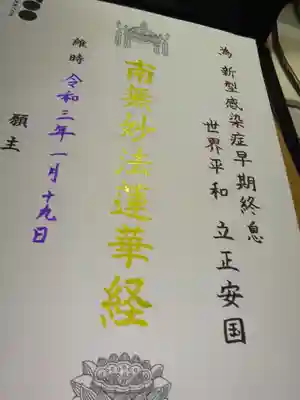 為新型感染症早期終息
世界平和 立正安国
南無妙法蓮華経
維時 令和三年一月十九日
願主